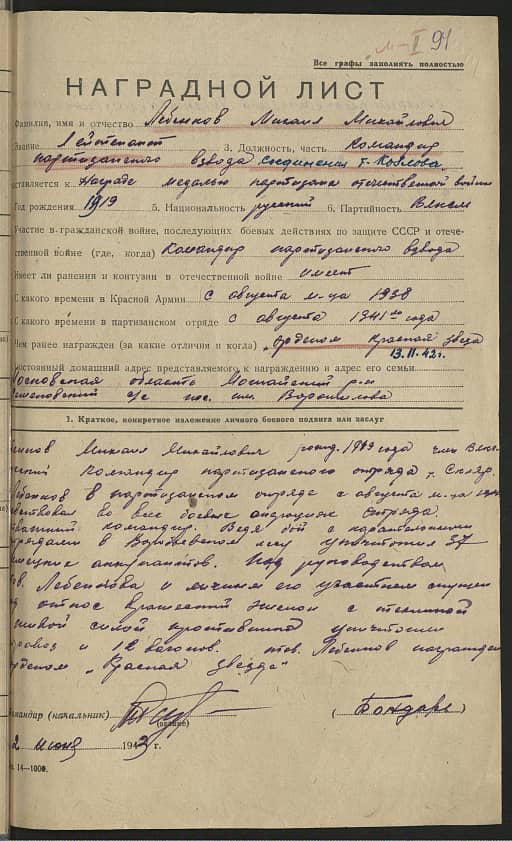 м-II 91
Все графы заполнять полностью
НАГРАДНОЙ ЛИСТ
Фамилия, имя и отчество Лебенков Михаил Михайлович
Звание Лейтенант 3. Должность, часть Командир
партизанского взвода соединения т. Козлова
ставляется к Награде медалью партизана отечественной войны
Год рождения 1919 5. Национальность русский 6. Партийность Влксм
Участие в гражданской войне, последующих боевых действиях по защите СССР и отече-
ственной войне (где, когда) Командир партизанского взвода
Имеет ли ранения и контузии в отечественной войне имеет
С какого времени в Красной Армии с августа м-ца 1938
С какого времени в партизанском отряде с августа 1941 года
Чем ранее награжден (за какие отличия и когда) Орденом Красная звезда
13.II.42 г.
Постоянный домашний адрес представляемого к награждению и адрес его семьи
Московская область Можайский р-н
с/с пос. им. Ворошилова
1. Краткое, конкретное изложение личного боевого подвига или заслуг
Михаил Михайлович рожд. 1919 года член
Командир партизанского отряда т.
Лебенков в партизанском отряде с августа м-ца
во все боевые операциях отряда.
командир. Ведя бой с карательными
отрядами в лесу уничтожил 37
немецких оккупантов. Под руководством
тов. Лебенкова и личным его участием спущен
под откос вражеский эшелон с техникой
живой силой противника уничтожили
паровоз и 12 вагонов. тов. Лебенков награжден
орденом „Красная звезда"
Командир (начальник) (Бондарь)
(звание)
2 июня 1943 г.
14—1000.